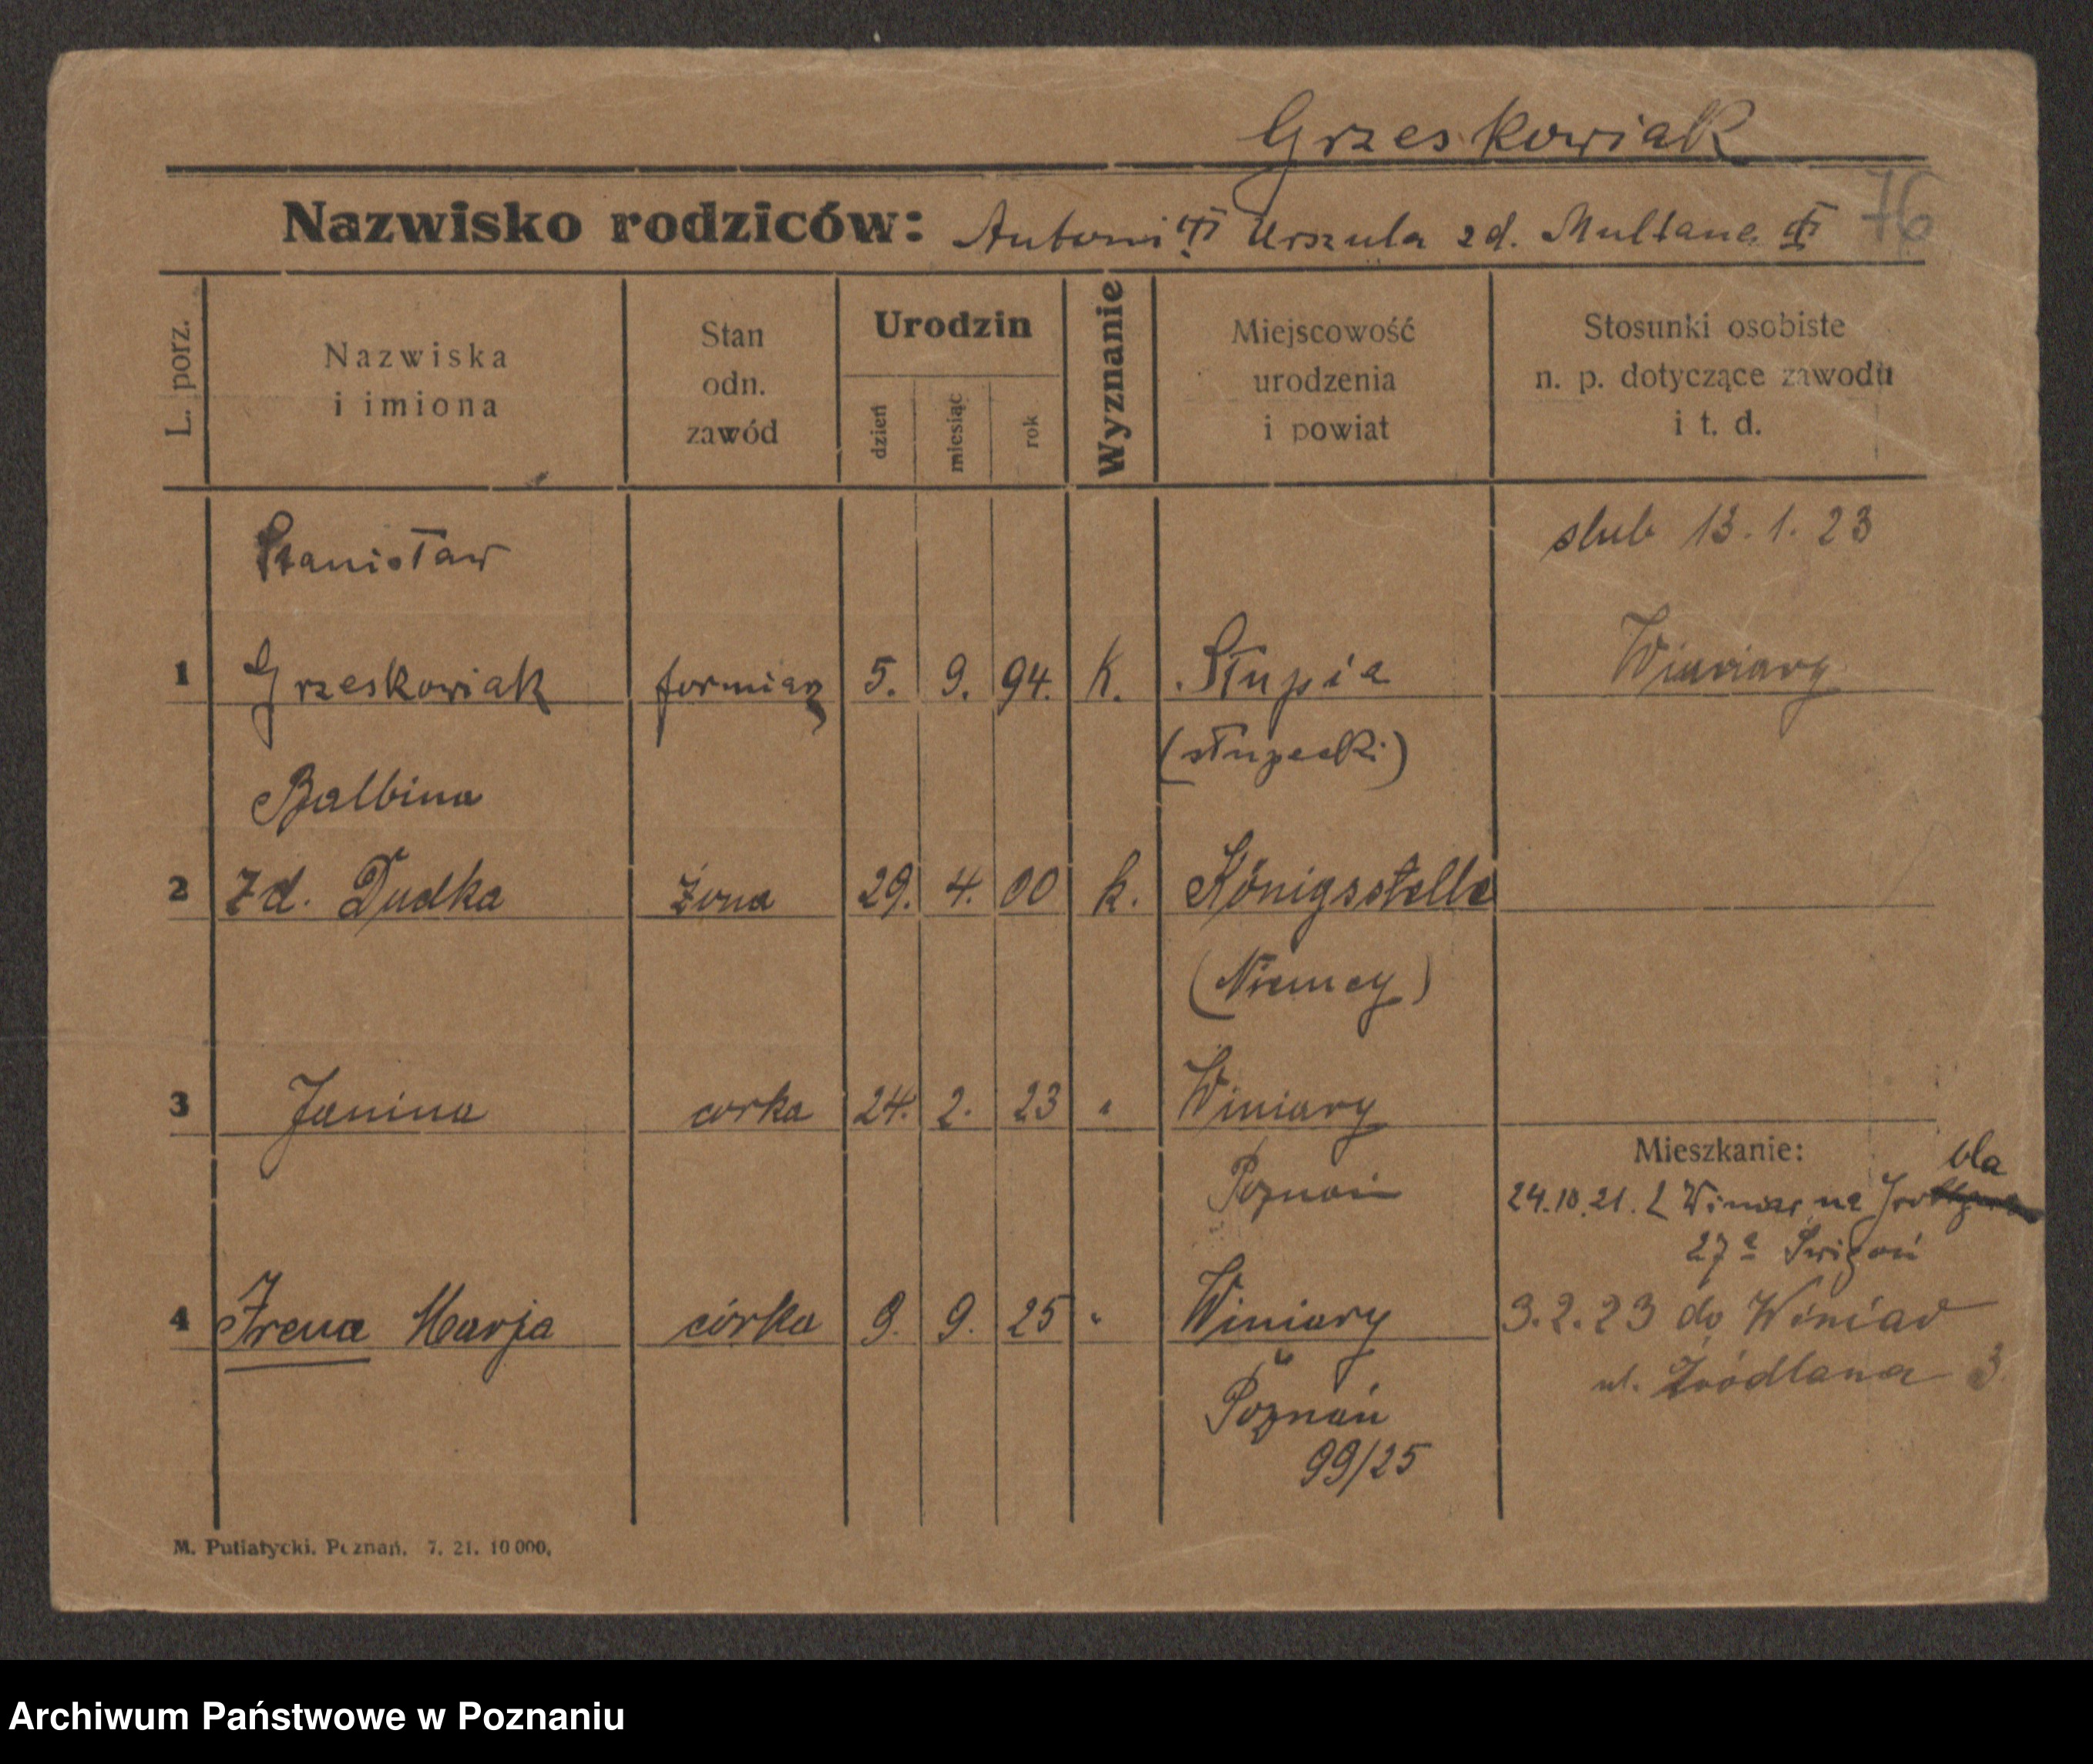 Grzeskowiak
Nazwisko rodziców: Antoni Urszula zd. Multane
76
L. porz.
Nazwiska
i imiona
Stan
odn.
zawód
Urodzin
dzień
miesiąc
rok
Wyznanie
Miejscowość
urodzenia
i powiat
Stosunki osobiste
n. p. dotyczące zawodu
i t. d.
slub 13.1.23
Stanisław
1 Grzeskowiak formiarz 5. 9. 94. K. Słupia Winiary
(słupecki)
Balbina
2 zd. Dudka żona 29. 4. 00 k. Königsstelle
(Niemcy)
3 Janina corka 24. 2. 23 " Winiary
Mieszkanie:
Poznań
bla
24.10.21. z Winiar na
27a
4 Irena Marja córka 9. 9. 25 " Winiary
3.2.23 do Winiar
ul. Źródlana 3
Poznań
99/25
M. Putiatycki. Poznań. 7. 21. 10 000.
Archiwum Państwowe w Poznaniu